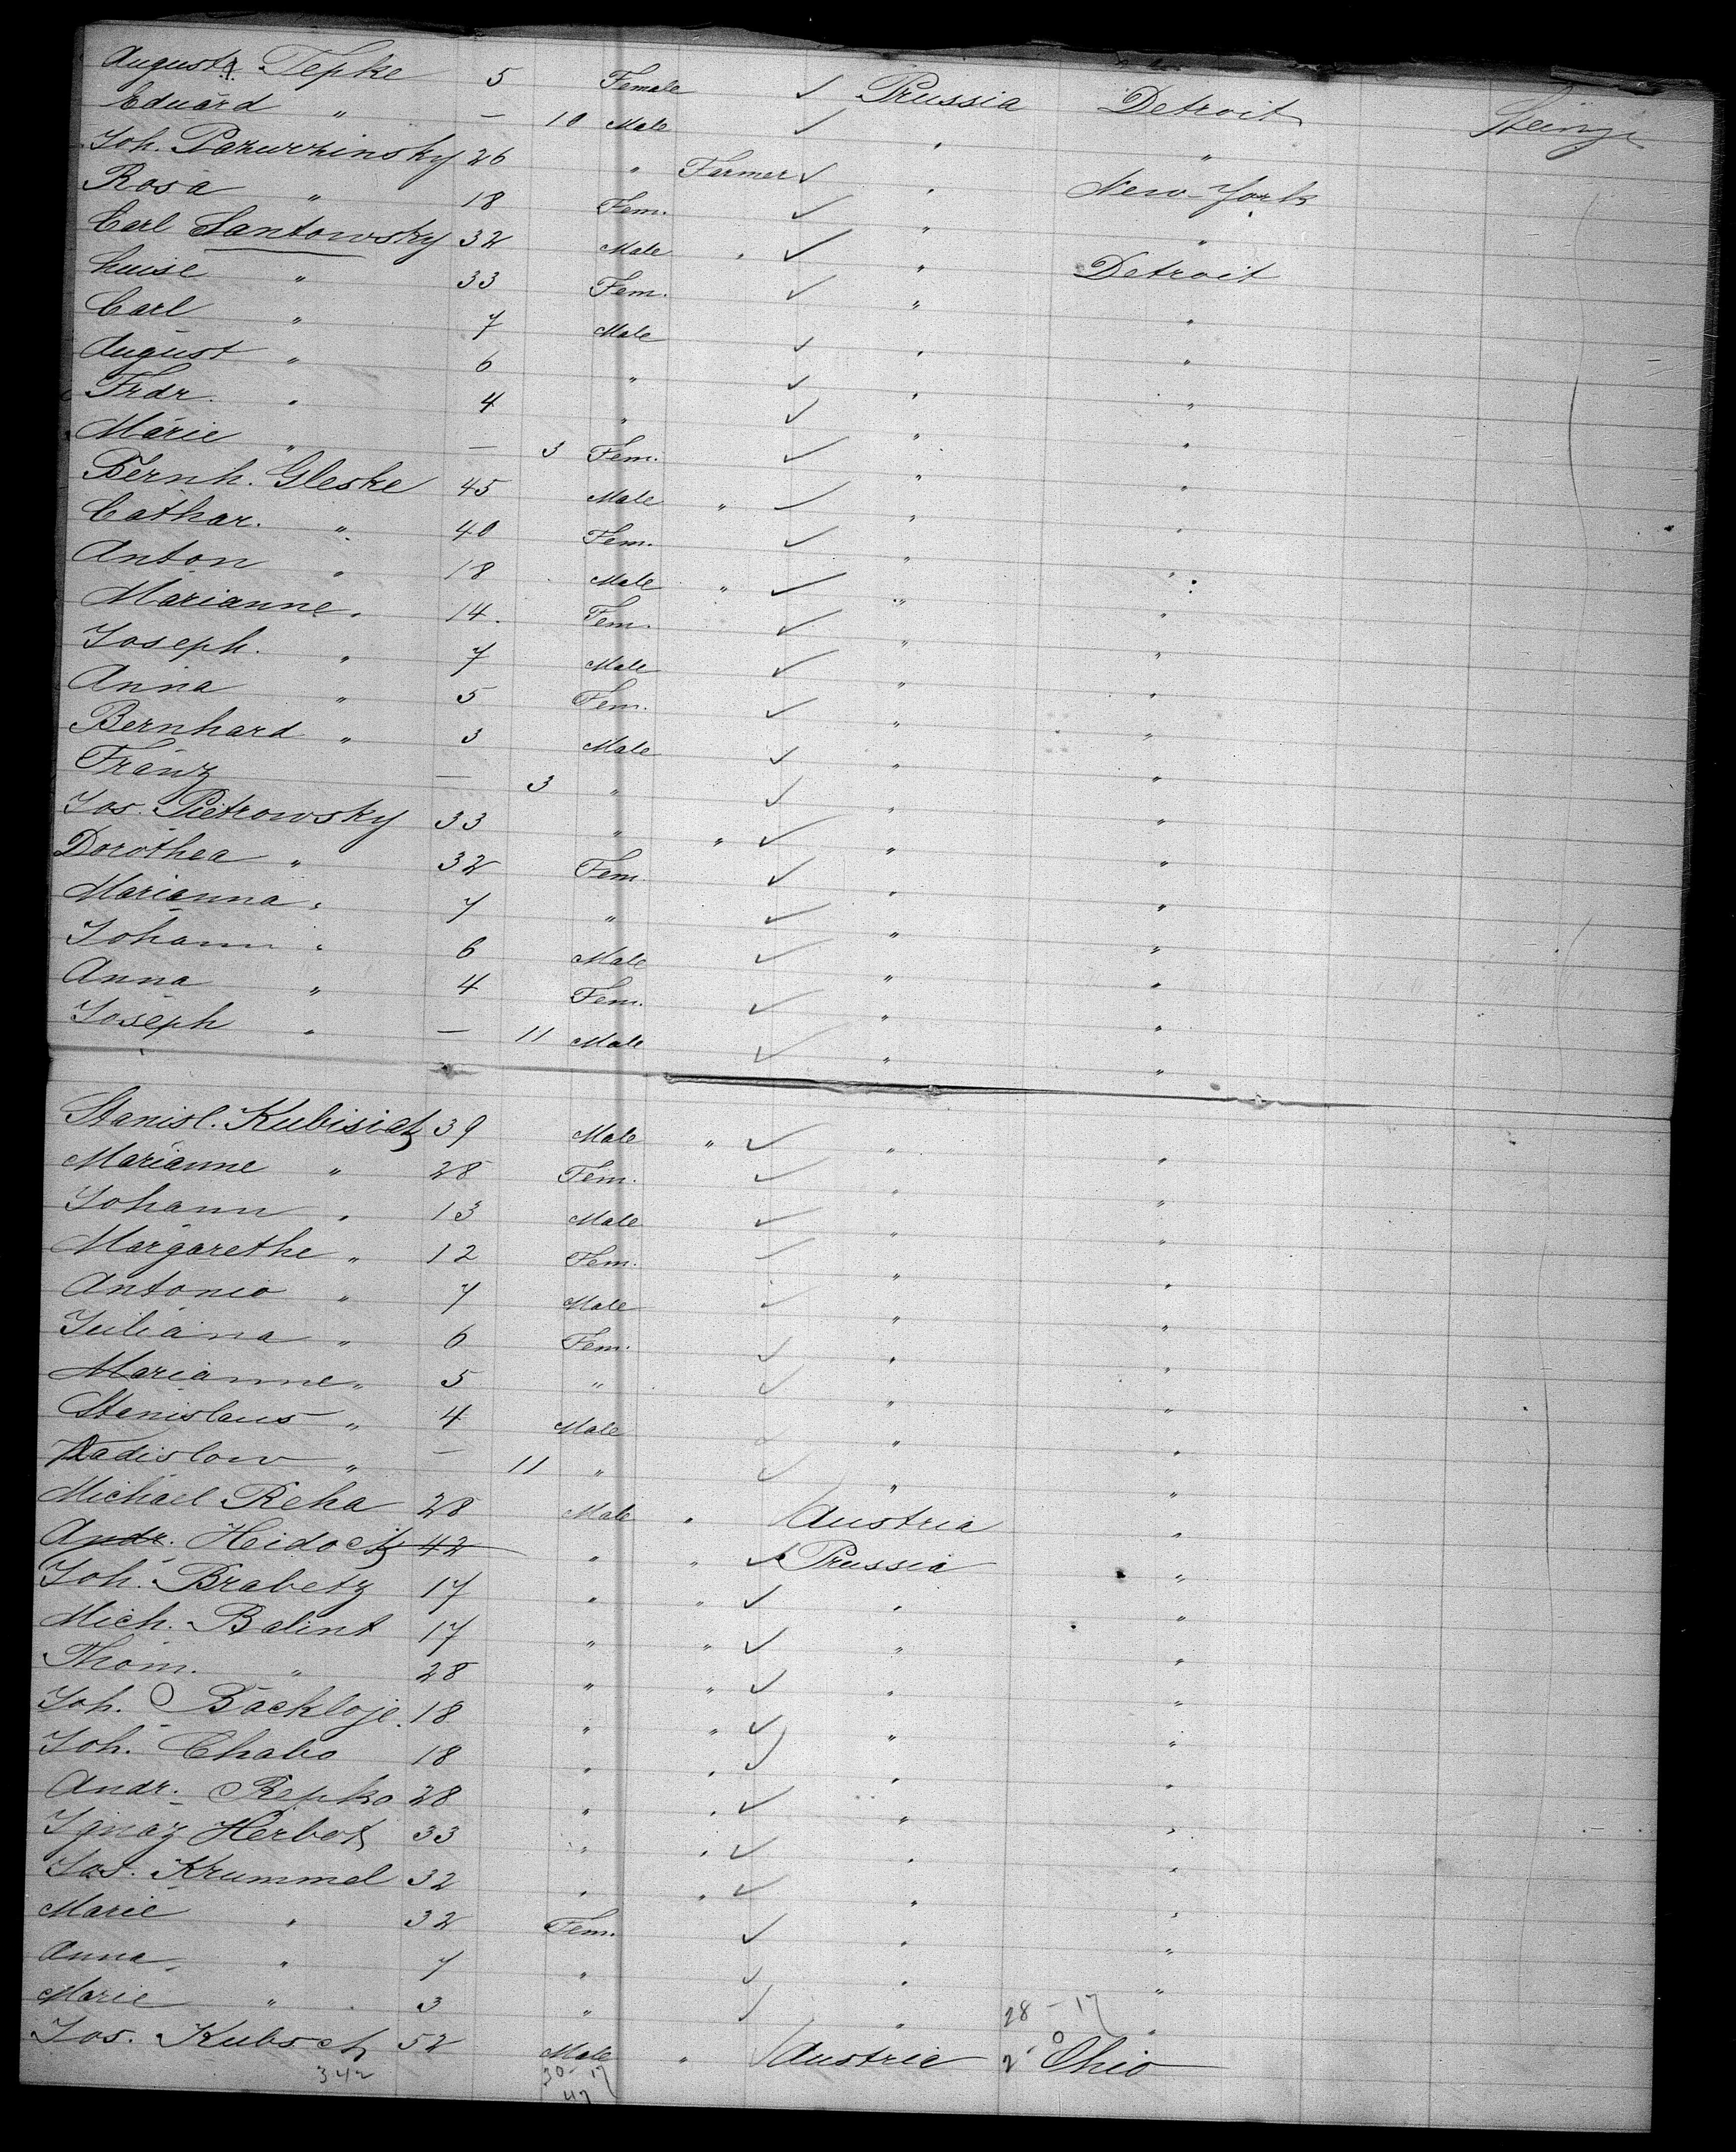 Auguste Tepke 5 Female ✓ Prussia Detroit Steinge
Eduard " — 10 Male ✓ " "
Joh. Pazurzinsky 26 " Farmer ✓ " New-York
Rosa " 18 Fem. ✓ " "
Carl Santowsky 32 Male " ✓ " Detroit
Luise " 33 Fem. ✓ " "
Carl " 7 Male ✓ " "
August " 6 " ✓ " "
Frdr. " 4 " ✓ " "
Marie " — 3 Fem. ✓ " "
Bernh. Gleske 45 Male " ✓ " "
Cathar. " 40 Fem. ✓ " "
Anton " 18 Male " ✓ " "
Marianne " 14. Fem. ✓ " "
Joseph. " 7 Male ✓ " "
Anna " 5 Fem. ✓ " "
Bernhard " 3 Male ✓ " "
Franz — 3 " ✓ " "
Jos. Pietrowsky 33 " " ✓ " "
Dorothea " 32 Fem. ✓ " "
Marianna " 7 " ✓ " "
Johann " 6 Male ✓ " "
Anna " 4 Fem. ✓ " "
Joseph " — 11 Male ✓ " "
Stanisl. Kubisiak 39 Male " ✓ " "
Marianne " 28 Fem. ✓ " "
Johann " 13 Male ✓ " "
Margarethe " 12 Fem. ✓ " "
Antonio " 7 Male ✓ " "
Juliana " 6 Fem. ✓ " "
Marianne " 5 " ✓ " "
Stanislaus " 4 Male ✓ " "
Wadislow " — 11 " ✓ " "
Michael Reha 28 Male " ✓ Austria "
Andr. Heidock 42 " " ✓ Prussia "
Joh. Brabetz 17 " " ✓ " "
Mich. Balint 17 " " ✓ " "
Thom. " 28 " " ✓ " "
Joh. Backloje. 18 " " ✓ " "
Joh. Chabo 18 " " ✓ " "
Andr. Repko 28 " " ✓ " "
Ignaz Herbok 33 " " ✓ " "
Jos. Krummel 32 " " ✓ " "
Marie " 32 Fem. ✓ " "
Anna " 7 " ✓ " "
Marie " 3 " ✓ " 28 - 17 "
Jos. Kubsch 52 Male " ✓ Austria 2 Ohio
342 30-17
47